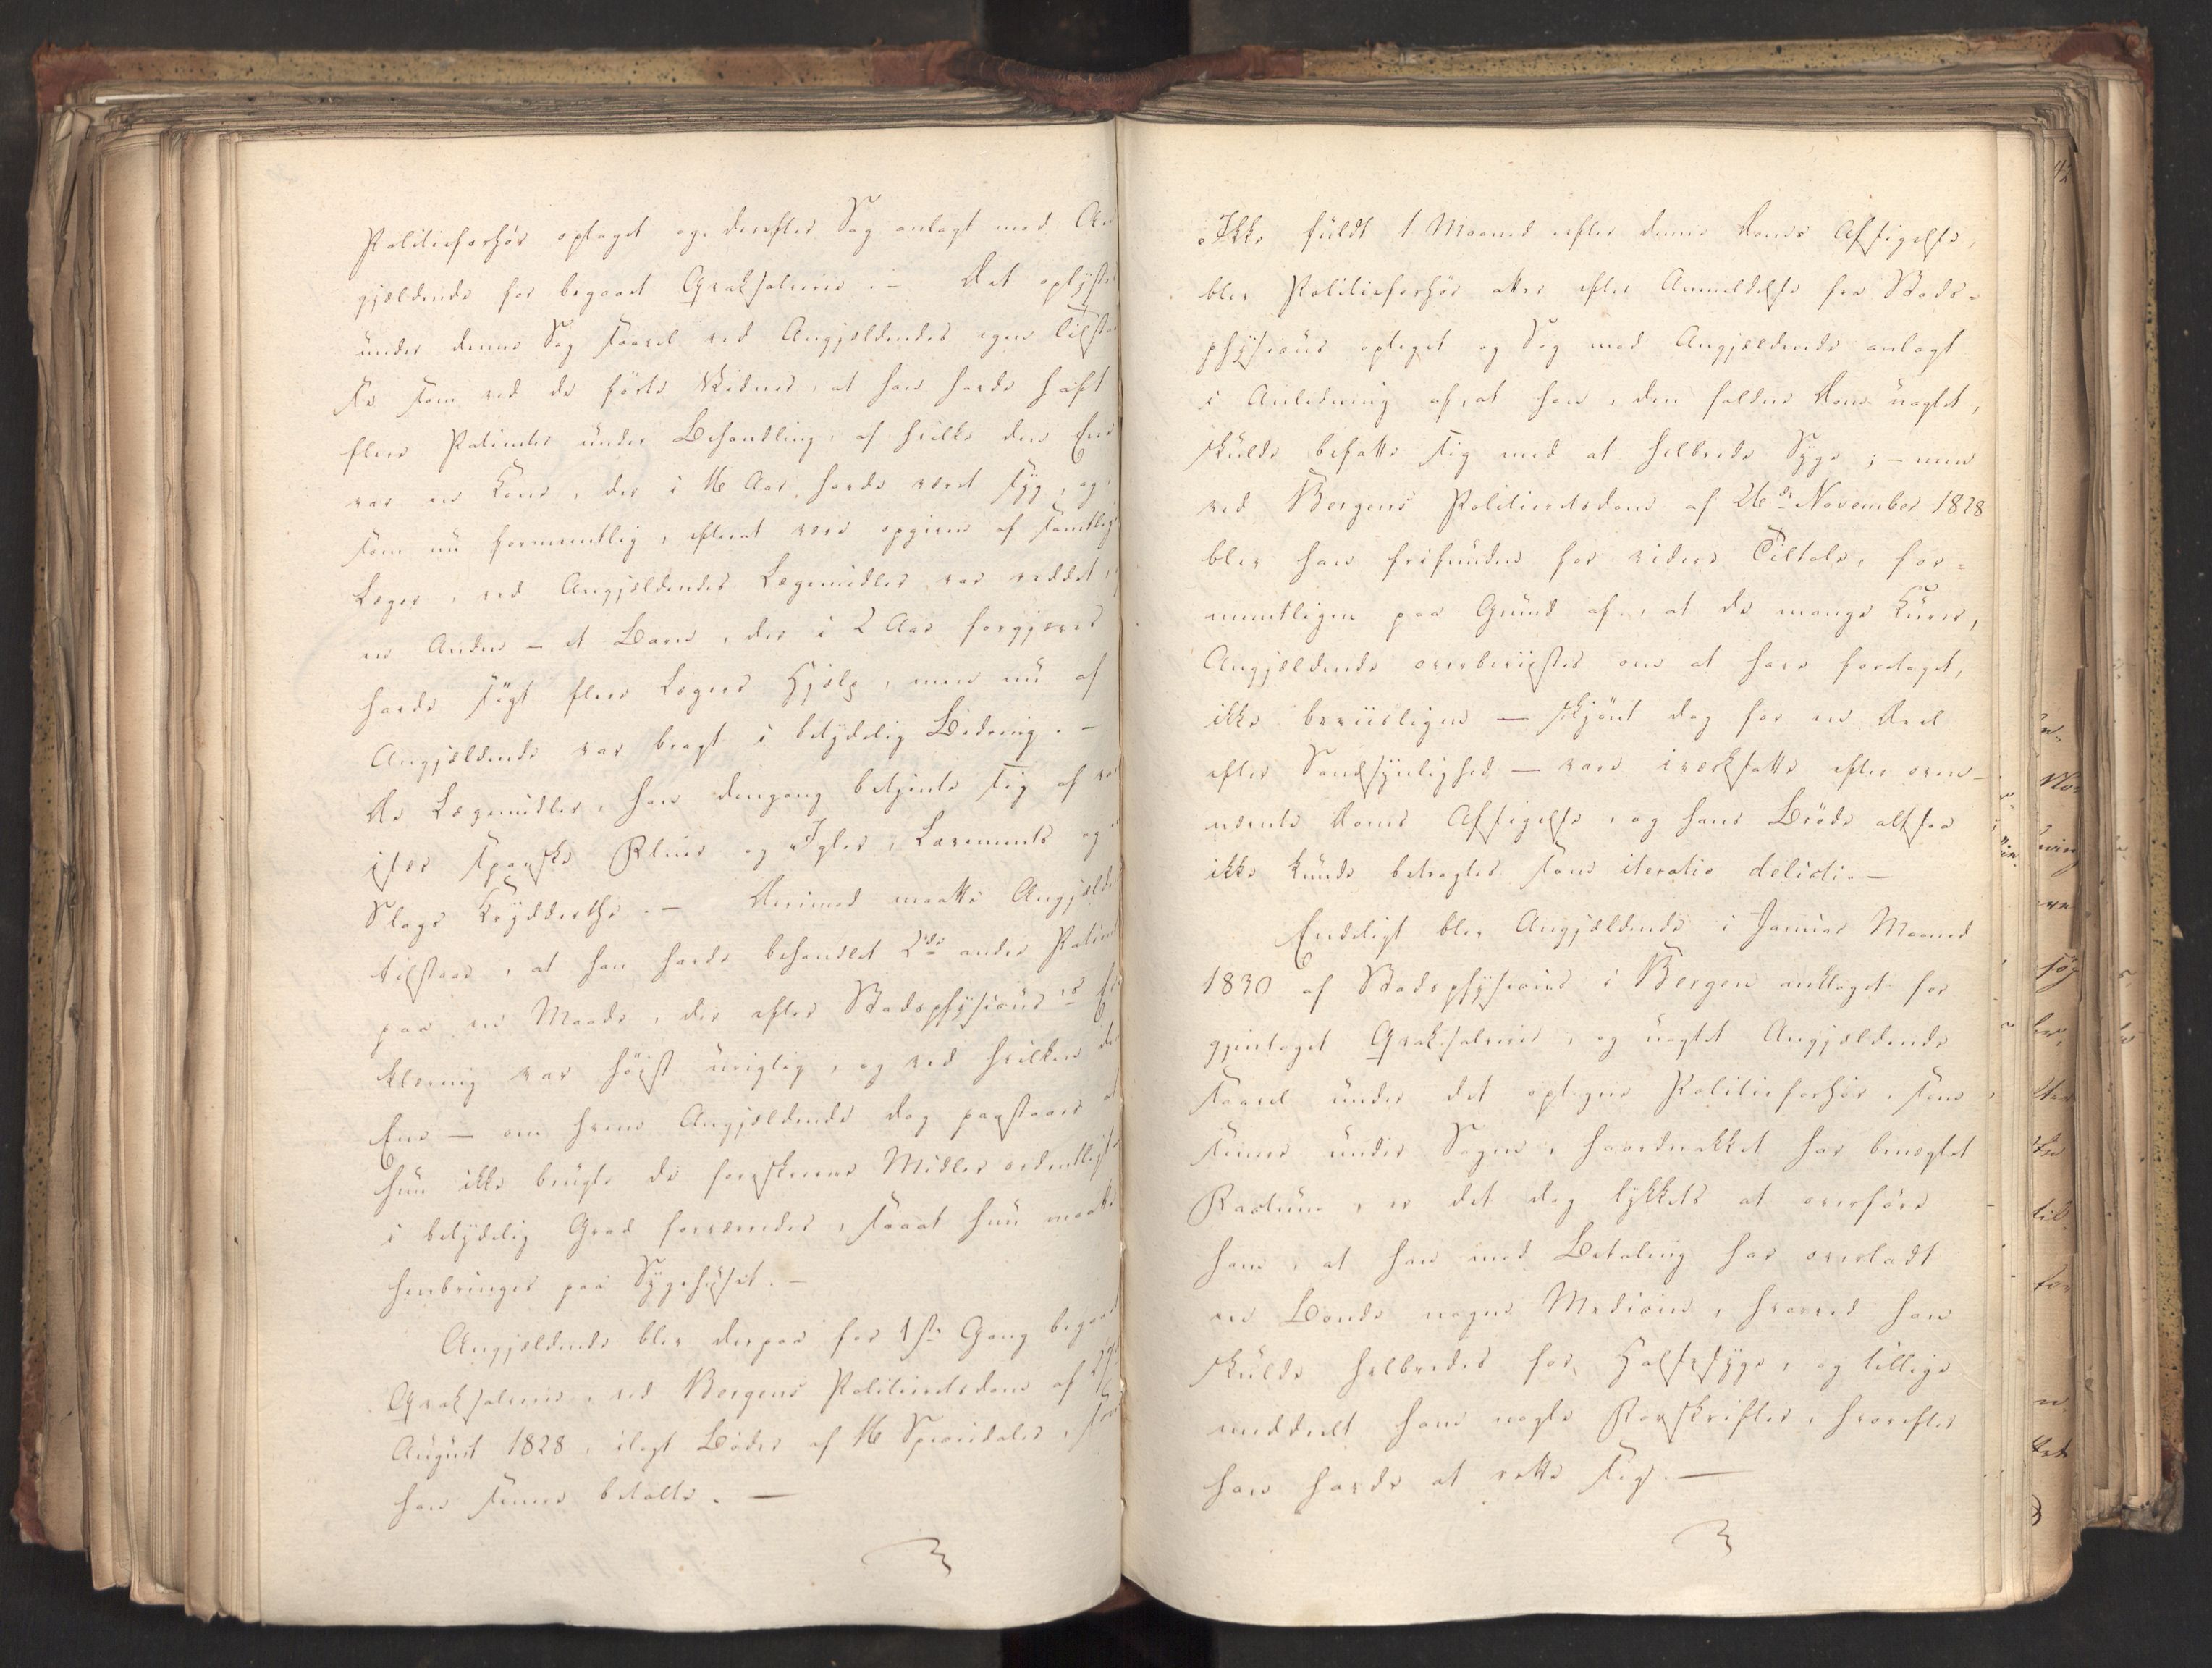 Politieforhør optaget og derefter Sag anlagt mod An
gjældende for begaaet Qvaksalverie. – Det oplystes
under denne Sag saavel ved Angjældendes egen Tilsta
se som ved de førte Vidner, at han havde haft
flere Patienter under Behandling, af hvilke den Ene
var en Kone, der i 16 Aar havde været syg, og
som nu formeentlig, efterat være opgiven af samtlige
Læger, ved Angjældendes Lægemidler var reddet,
en Anden – et Barn, der i 2 Aar forgjæves
havde søgt flere Lægers Hjælp, men nu af
Angjældende var bragt i betydelig Bedring. –
De Lægemidler, han dengang betjente sig af var
især spanske Fluer og Igler, Lavements og
Slags Kryddersthe. – Derimod maatte Angjælde
tilstaae, at han havde behandlet 2de andre Patient
paa en Maade, der efter Stadsphysicus's Er
klæring var høist urigtig, og ved hvilken de
Ene – om hvem Angjældende dog paastaaer at
hun ikke brugte de foreskrevne Midler ordentligt
i betydelig Grad forværredes, saaat hun maatte
henbringes paa Sygehuset. –
Angjældende blev derpaa for 1ste Gang begaaet
Qvaksalverie, ved Bergens Politieretsdom af 27de
August 1828, ilagt Bøder af 16 Speciedaler, som
han senere betalte. –
Ikke fuldt 1 Maaned efter denne Doms Afsigelse,
blev Politieforhør atter efter Anmeldelse fra Stads-
physicus optaget og Sag mod Angjældende anlagt
i Anledning af, at han, den faldne Dom uagtet,
skulde befatte sig med at helbrede Syge; – men
ved Bergens Politieretsdom af 26de November 1828
blev han frifunden for videre Tiltale, for-
mentligen paa Grund af, at de mange Kurer,
Angjældende overbeviistes om at have foretaget,
ikke beviisligen – skjønt dog for en Deel
efter Sandsynlighed – vare iværksatte efter oven-
nævnte Doms Afsigelse, og hans Brøde altsaa
ikke kunde betragtes som iteratio delicti. –
Endeligt blev Angjældende i Januar Maaned
1830 af Stadsphysicus i Bergen anklaget for
gjentaget Qvaksalverie, og uagtet Angjældende
saavel under det optagne Politieforhør, som
senere under Sagen, haardnakket har benægtet
Factum, er det dog lykkets at overføre
ham, at han mod Betaling har overladt
en Bonde nogen Medicin, hvorved han
skulde helbredes for Halssyge, og tillige
meddeelt ham nogle Forskrifter, hvorefter
han havde at rette sig. –